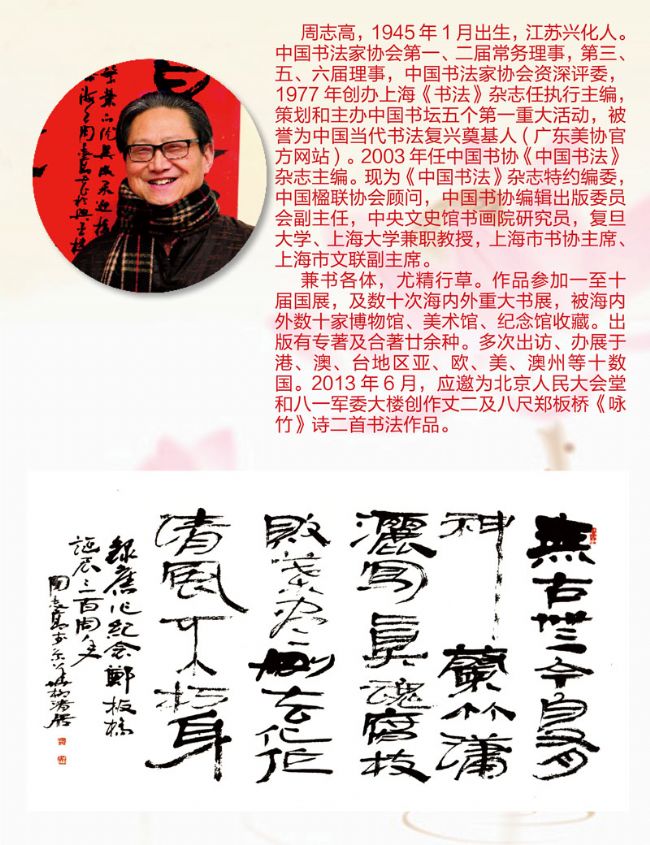 周志高，1945 年 1 月出生，江苏兴化人。
中国书法家协会第一、二届常务理事，第三、
五、六届理事，中国书法家协会资深评委，
1977 年创办上海《书法》杂志任执行主编，
策划和主办中国书坛五个第一重大活动，被
誉为中国当代书法复兴奠基人（广东美协官
方网站）。2003 年任中国书协《中国书法》
杂志主编。现为《中国书法》杂志特约编委，
中国楹联协会顾问，中国书协编辑出版委员
会副主任，中央文史馆书画院研究员，复旦
大学、上海大学兼职教授，上海市书协主席、
上海市文联副主席。
兼书各体，尤精行草。作品参加一至十
届国展，及数十次海内外重大书展，被海内
外数十家博物馆、美术馆、纪念馆收藏。出
版有专著及合著廿余种。多次出访、办展于
港、澳、台地区亚、欧、美、澳州等十数
国。2013 年 6 月，应邀为北京人民大会堂
和八一军委大楼创作丈二及八尺郑板桥《咏
竹》诗二首书法作品。
無古無今自有
神蘭竹瀟
灑寫真魂腐枝
敗葉尽刪去化作
清風不朽身
錄舊作紀念鄭板橋
誕辰三百周年
周志高